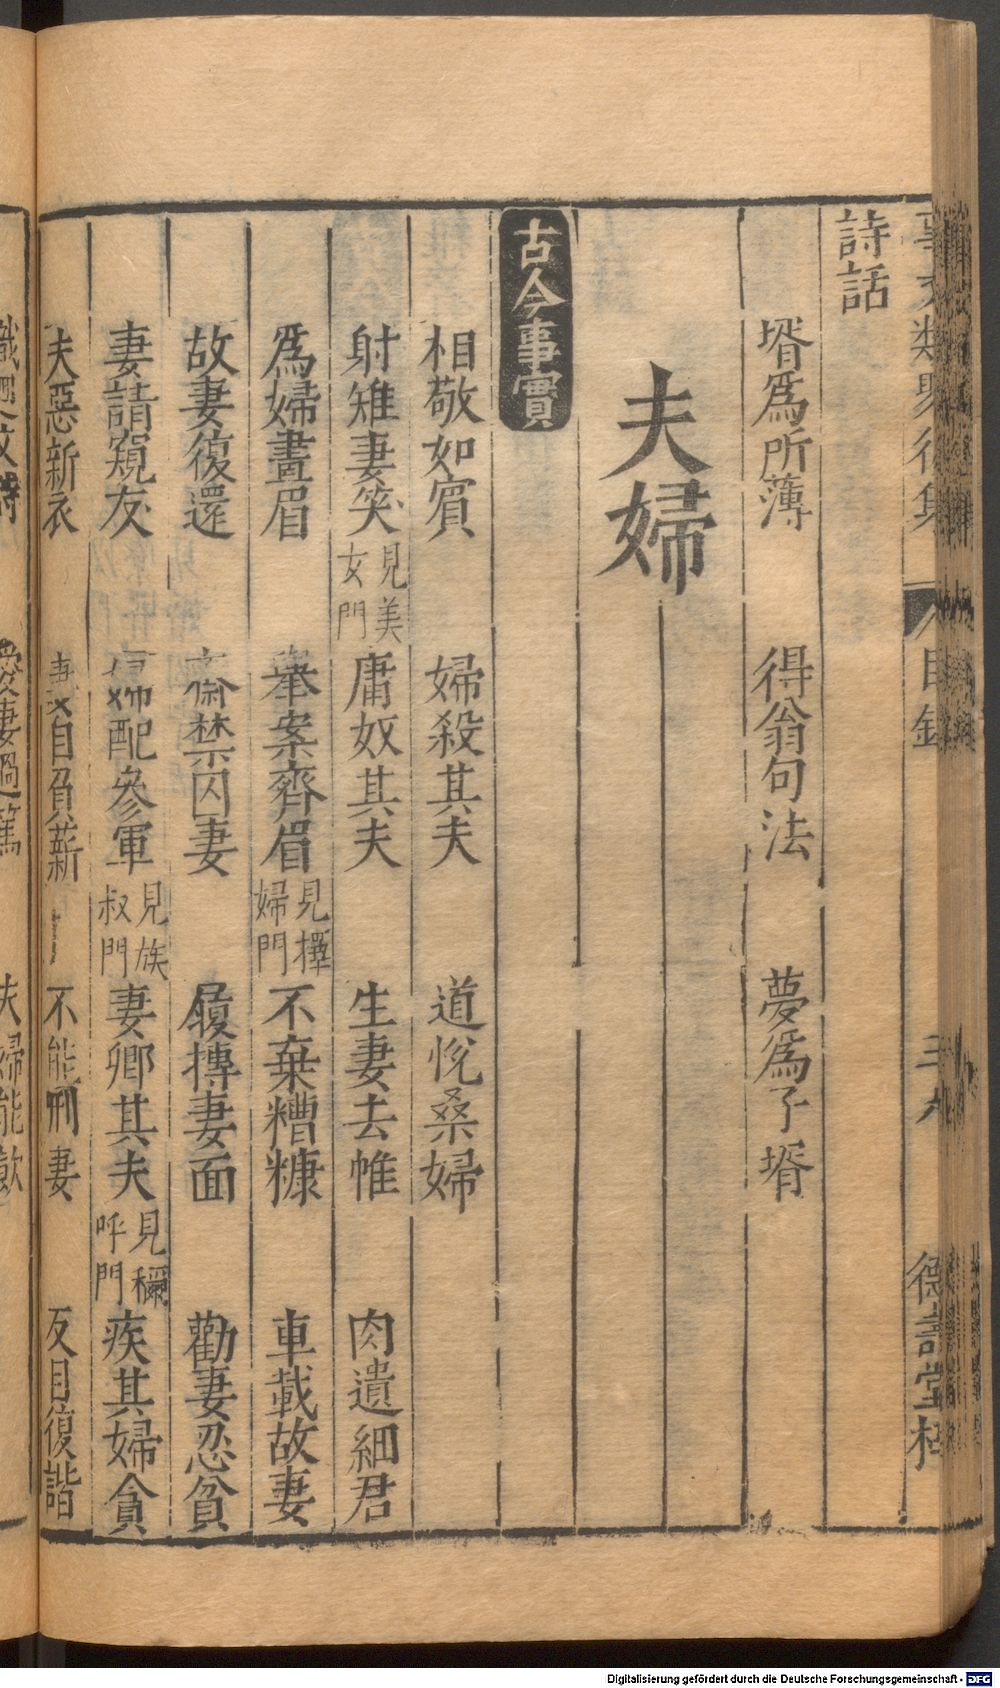 詩話
壻爲所薄　得翁句法　夢爲子壻
夫婦
古今事實
相敬如賓　婦殺其夫　道悅桑婦
射雉妻笑 見美女門　庸奴其夫　生妻去帷　肉遺細君
爲婦畫眉　舉案齊眉 見擇婦門　不棄糟糠　車載故妻
故妻復還　齋禁囚妻　履搏妻面　勸妻忍貧
妻請窺友　婦配參軍 見族叔門　妻卿其夫 見稱呼門　疾其婦貪
夫惡新衣　妻自負薪　不能刑妻　反目復諧
Digitalisierung gefördert durch die Deutsche Forschungsgemeinschaft - DFG